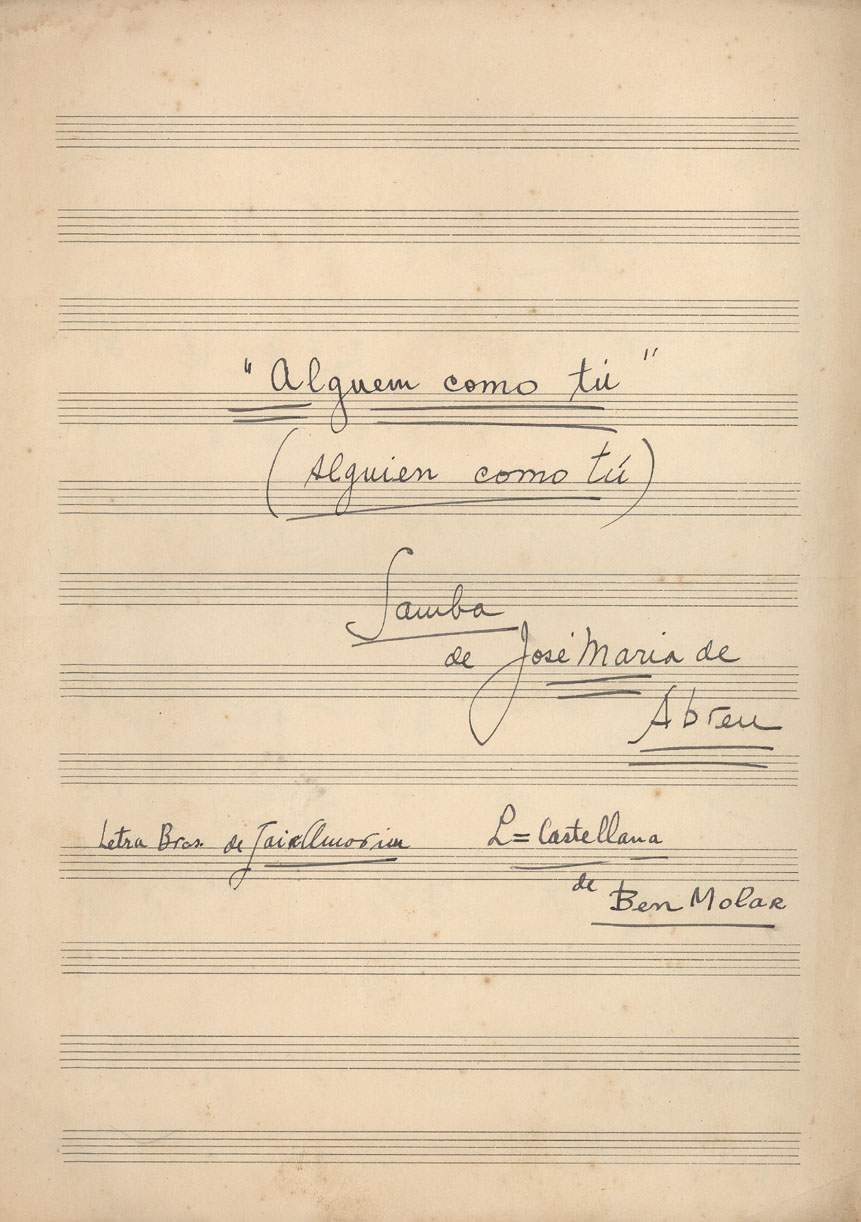 "Alguem como tú"
(Alguien como tú)
Samba
de José Maria de
Abreu
Letra Bras. de Jair Amorim L= Castellana
de
Ben Molar